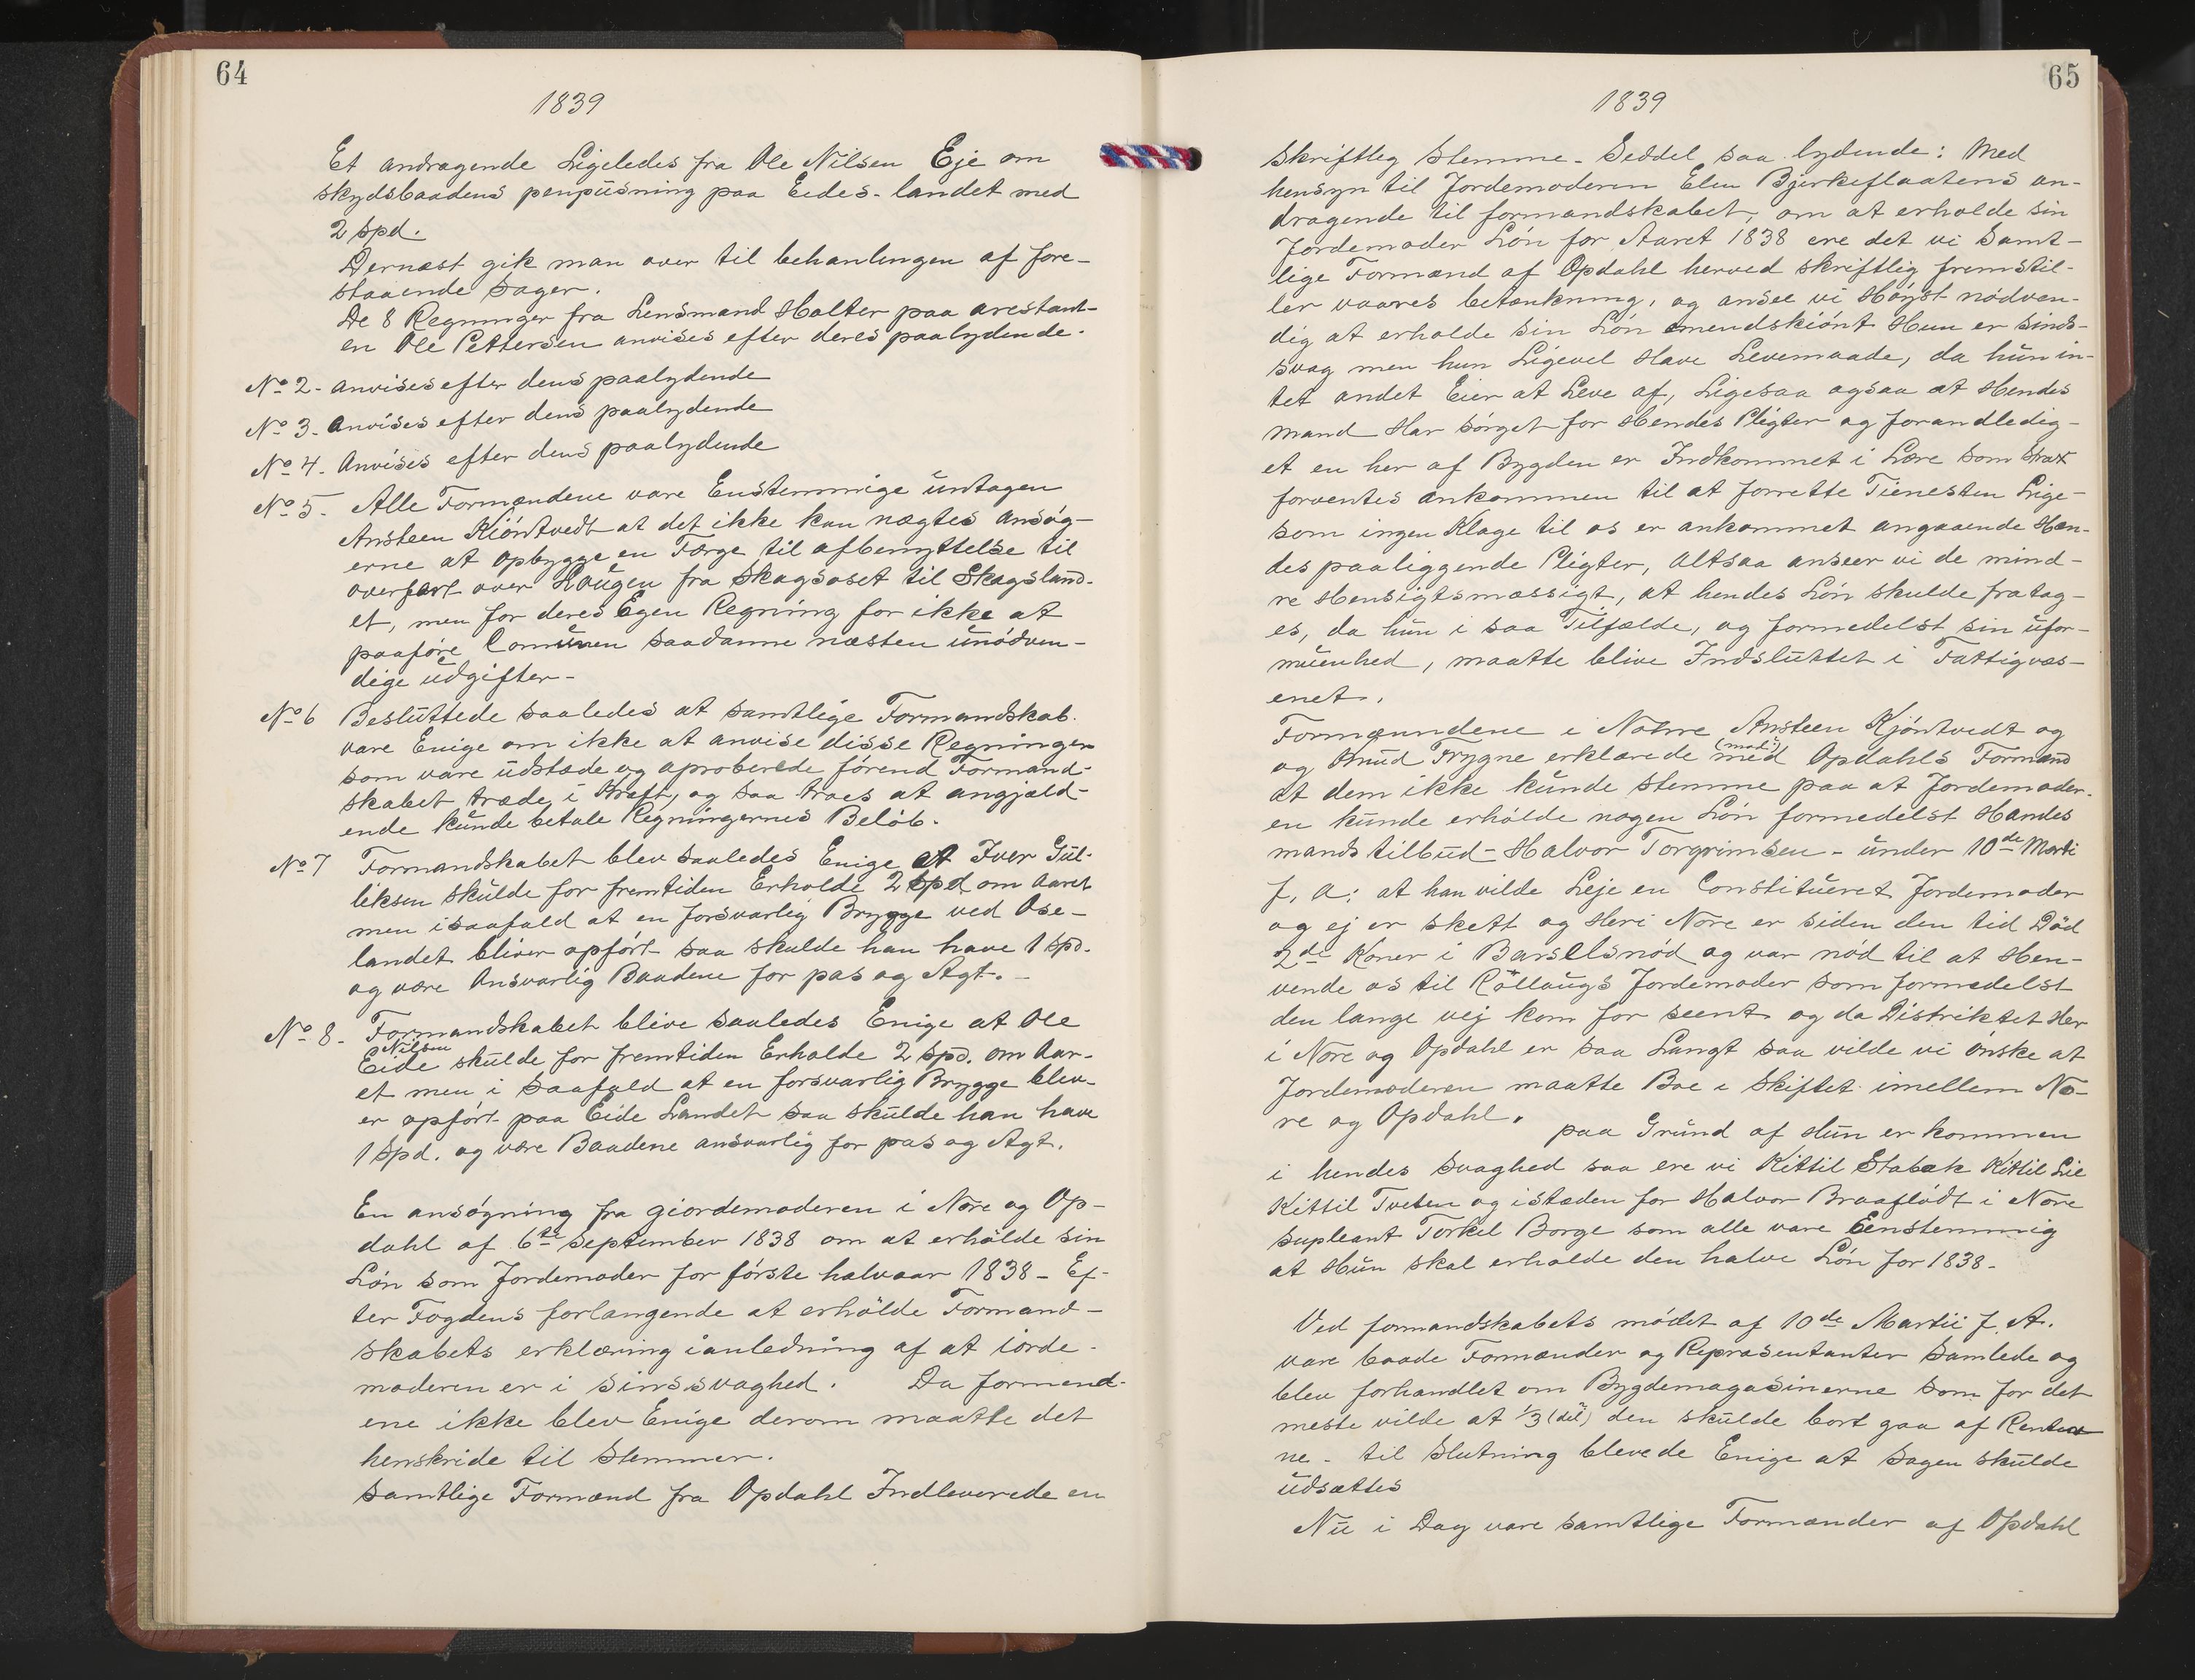 64
1839
Et andragende Ligeledes fra Ole Nilsen Eje om
skydsbaadens penpüsning paa Eedes-landet med
2 spd.
Dernæst gik man over til behanlingen af fore-
staaende sager.
De 8 Regninger fra Lensmand Halter paa arestant-
en Ole Pettersen anvises efter deres paalydende.
No 2. anvises efter dens paalydende
No 3. Anvises efter dens paalydende
No 4. Anvises efter dens paalydende
No 5. Alle Formændene vare Enstemmige üntagen
Ansteen Kióntvedt at det ikke kan nægtes ansög-
erne at opbygge en Færge til afbenyttelse til
overfart over Lougen fra Skagsoset til Skagsland-
et, men for deres Egen Regning for ikke at
paaføre Comünen saadanne næsten ünódven-
dige üdgifter-
No 6 Beslüttede saaledes at samtlige Formandskab.
vare Enige om ikke at anvise disse Regninger
som vare üdstæde og aproberede førend Formand-
skabet træde i Kraft, og saa troes at angjæld-
ende künde betale Regningernes Belób.
No 7 Formandskabet blev saaledes Enige at Iver Gül-
liksen skülde for fremtiden Erholde 2 spd om Aaret
men isaafald at en forsvarlig Brygge ved Ose-
landet bliver opfórt saa skulde han have 1 spd.
og være Ansvarlig Baadene for pas og Agt.-
No 8. Formandskabet blive saaledes Enige at Ole
Nilsen
Eide skulde for fremtiden Erholde 2 spd. om Aar-
et men i saafald at en forsvarlig Brygge blev-
er opfórt paa Eide Landet saa skülde han have
1 spd. og være Baadene ansvarlig for pas og Agt.
En ansógning fra giordemoderen i Nore og Op-
dahl af 6te September 1838 om at erholde sin
Lón som Jordemoder for fórste halvaar 1838- Ef-
ter Fogdens forlangende at erholde Formand-
skabets erklæring ianledning af at iorde-
moderen er i sinssvaghed. Da formend-
ene ikke blev Enige derom maatte det
henskride til Stemmer.
Samtlige Formænd fra Opdahl Indleverede en
65
1839
Skriftleg Stemme-Seddel saa lydende: Med
hensyn til Jordemoderen Elen Bjerkeflaatens an-
dragende til formandskabet, om at erholde sin
Jordemoder Lón for Aaret 1838 ere det vi Samt-
lige Formænd af Opdahl herved skriftlig fremstil-
ler vaares betænkning, og ansee vi Høyst nódven-
dig at erholde sin Lón omendskiónt Hun er sinds-
svag men hun Ligevel Have Levemaade, da hün in-
tet andet Eier at Leve af, Ligesaa ogsaa at Hendes
mand Har sórget for Hendes Pligter og forandledig-
et en her af Bygden er Indkommet i Lære som strax
forventes ankommen til at forrette Tienesten Lige-
som ingen Klage til os er ankommet angaaende Hen-
des paaliggende Pligter, altsaa anseer vi de mind-
re Hensigtsmæssigt, at hendes Lón skulde fratag-
es, da hün i saa Tilfælde, og formedelst sin üfor-
müenhed, maatte blive Indslüttet i Fattigvæs-
enet.
Formændene i Nohre Ansteen Kjóntvedt og
og Knüd Frygne erklærede med Opdahls Formænd
at dem ikke künde stemme paa at Jordemoder-
en künde erholde nogen Lón formedelst Handes
mands tilbüd - Halvor Torgrimsen - ünder 10de Marti
f. A: at han vilde Leje en Constitüeret Jordemoder
og ej er skett og Heri Nore er siden den tid Död
2de Koner i Barselsnód og var nód til at Hen-
vende os til Röllaugs Jordemoder som formedelst
den lange vej kom for seent og da Distriktet Her
i Nore og Opdahl er saa Langt saa vilde vi ónske at
Jordemoderen maatte Boe i Skiftet imellem No-
re og Opdahl.
paa Gründ af Hün er kommen
i hendes svaghed saa ere vi Kittil Stabæk Kittil Lie
Kittil Tveten og istæden for Halvor Braaflódt i Nore
supleant Torkel Borge som alle vare Eenstemmig
at Hün skal erholde den halve Lón for 1838-
Ved formandskabets módet af 10de Martii f. A.
vare baade Formænder og Repræsentanter samlede og
blev forhandlet om Bygdemagasinerne som for det
meste vilde at 1/3 (dél) den skülde bort gaa af Renter
ne- til Slutning bleve de Enige at sagen skülde
üdsættes
Nü i Dag vare samtlige Formænder af Opdahl